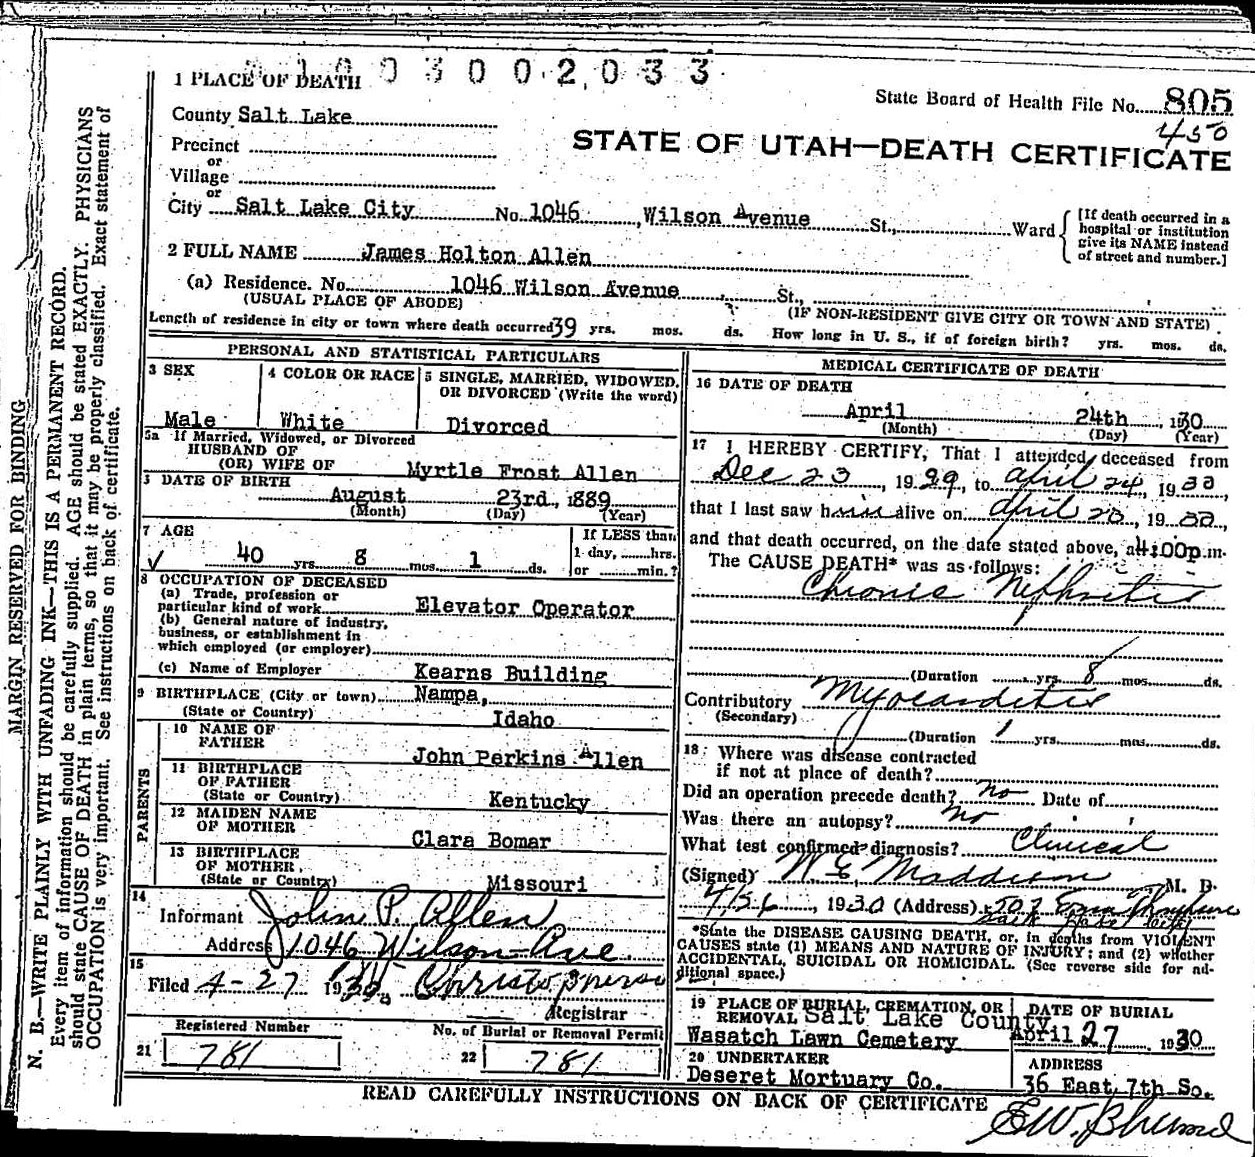 1 PLACE OF DEATH
3 0 0 2 0 3 3
State Board of Health File No. 805
450
County Salt Lake
STATE OF UTAH—DEATH CERTIFICATE
Precinct
or
Village
or
City Salt Lake City No. 1046, Wilson Avenue St., Ward
[If death occurred in a hospital or institution give its NAME instead of street and number.]
2 FULL NAME James Holton Allen
(a) Residence. No. 1046 Wilson Avenue, St.,
(USUAL PLACE OF ABODE) (IF NON-RESIDENT GIVE CITY OR TOWN AND STATE)
Length of residence in city or town where death occurred 39 yrs. mos. ds. How long in U. S., if of foreign birth? yrs. mos. ds.
PERSONAL AND STATISTICAL PARTICULARS
3 SEX
Male
4 COLOR OR RACE
White
5 SINGLE, MARRIED, WIDOWED, OR DIVORCED (Write the word)
Divorced
5a If Married, Widowed, or Divorced
HUSBAND OF
(OR) WIFE OF Myrtle Frost Allen
DATE OF BIRTH
August 23rd, 1889
(Month) (Day) (Year)
7 AGE
40 yrs. 8 mos. 1 ds.
If LESS than
1 day, hrs.
or min.?
8 OCCUPATION OF DECEASED
(a) Trade, profession or
particular kind of work Elevator Operator
(b) General nature of industry,
business, or establishment in
which employed (or employer)
(c) Name of Employer Kearns Building
9 BIRTHPLACE (City or town) Nampa,
(State or Country) Idaho
PARENTS
10 NAME OF
FATHER John Perkins Allen
11 BIRTHPLACE
OF FATHER
(State or Country) Kentucky
12 MAIDEN NAME
OF MOTHER Clara Bomar
13 BIRTHPLACE
OF MOTHER
(State or Country) Missouri
14
Informant John P. Allen
Address 1046 Wilson Ave
15
Filed 4-27 1930
Registrar
Registered Number
21 781
No. of Burial or Removal Permit
22 781
MEDICAL CERTIFICATE OF DEATH
16 DATE OF DEATH
April 24th, 1930
(Month) (Day) (Year)
17 I HEREBY CERTIFY, That I attended deceased from
Dec 23, 1929, to April 24, 1930,
that I last saw him alive on April 20, 1930,
and that death occurred, on the date stated above, at 4:00p.m.
The CAUSE DEATH* was as follows:
Chronic Nephritis
(Duration yrs. 8 mos. ds.
Contributory Myocarditis
(Secondary)
(Duration 1 yrs. mos. ds.
18 Where was disease contracted
if not at place of death?
Did an operation precede death? no Date of
Was there an autopsy? no
What test confirmed diagnosis? Clinical
(Signed) M. D.
1930 (Address)
*State the DISEASE CAUSING DEATH, or, in deaths from VIOLENT
CAUSES state (1) MEANS AND NATURE OF INJURY; and (2) whether
ACCIDENTAL, SUICIDAL OR HOMICIDAL. (See reverse side for ad-
ditional space.)
19 PLACE OF BURIAL, CREMATION, OR
REMOVAL Salt Lake County
Wasatch Lawn Cemetery
DATE OF BURIAL
April 27 1930
20 UNDERTAKER
Deseret Mortuary Co.
ADDRESS
36 East 7th So.
READ CAREFULLY INSTRUCTIONS ON BACK OF CERTIFICATE
MARGIN RESERVED FOR BINDING
N. B.—WRITE PLAINLY WITH UNFADING INK—THIS IS A PERMANENT RECORD.
Every item of information should be carefully supplied. AGE should be stated EXACTLY. PHYSICIANS
should state CAUSE OF DEATH in plain terms, so that it may be properly classified. Exact statement of
OCCUPATION is very important. See instructions on back of certificate.